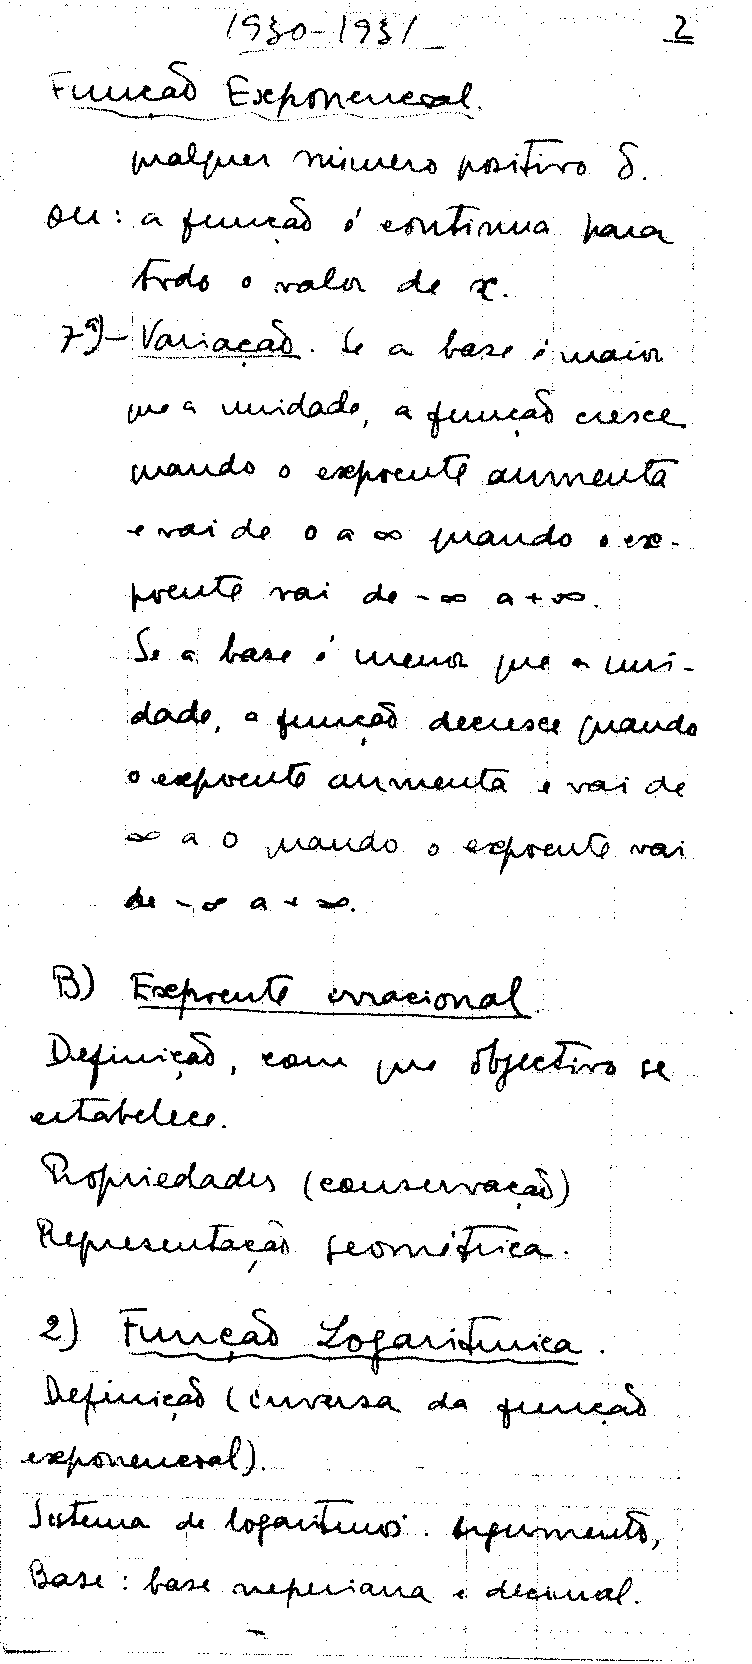 1930-1931 2
Função Exponencial.
qualquer número positivo δ.
ou: a função é contínua para
todo o valor de x.
7ª)- Variação. Se a base é maior
que a unidade, a função cresce
quando o expoente aumenta
e vai de 0 a ∞ quando o ex-
poente vai de -∞ a +∞.
Se a base é menor que a uni-
dade, a função decresce quando
o expoente aumenta e vai de
∞ a 0 quando o expoente vai
de -∞ a +∞.
B) Expoente irracional
Definição, com que objectivo se
estabelece.
Propriedades (conservação)
Representação geométrica.
2) Função Logarítmica.
Definição (inversa da função
exponencial).
Sistema de logaritmos. Argumento,
Base: base neperiana e decimal.